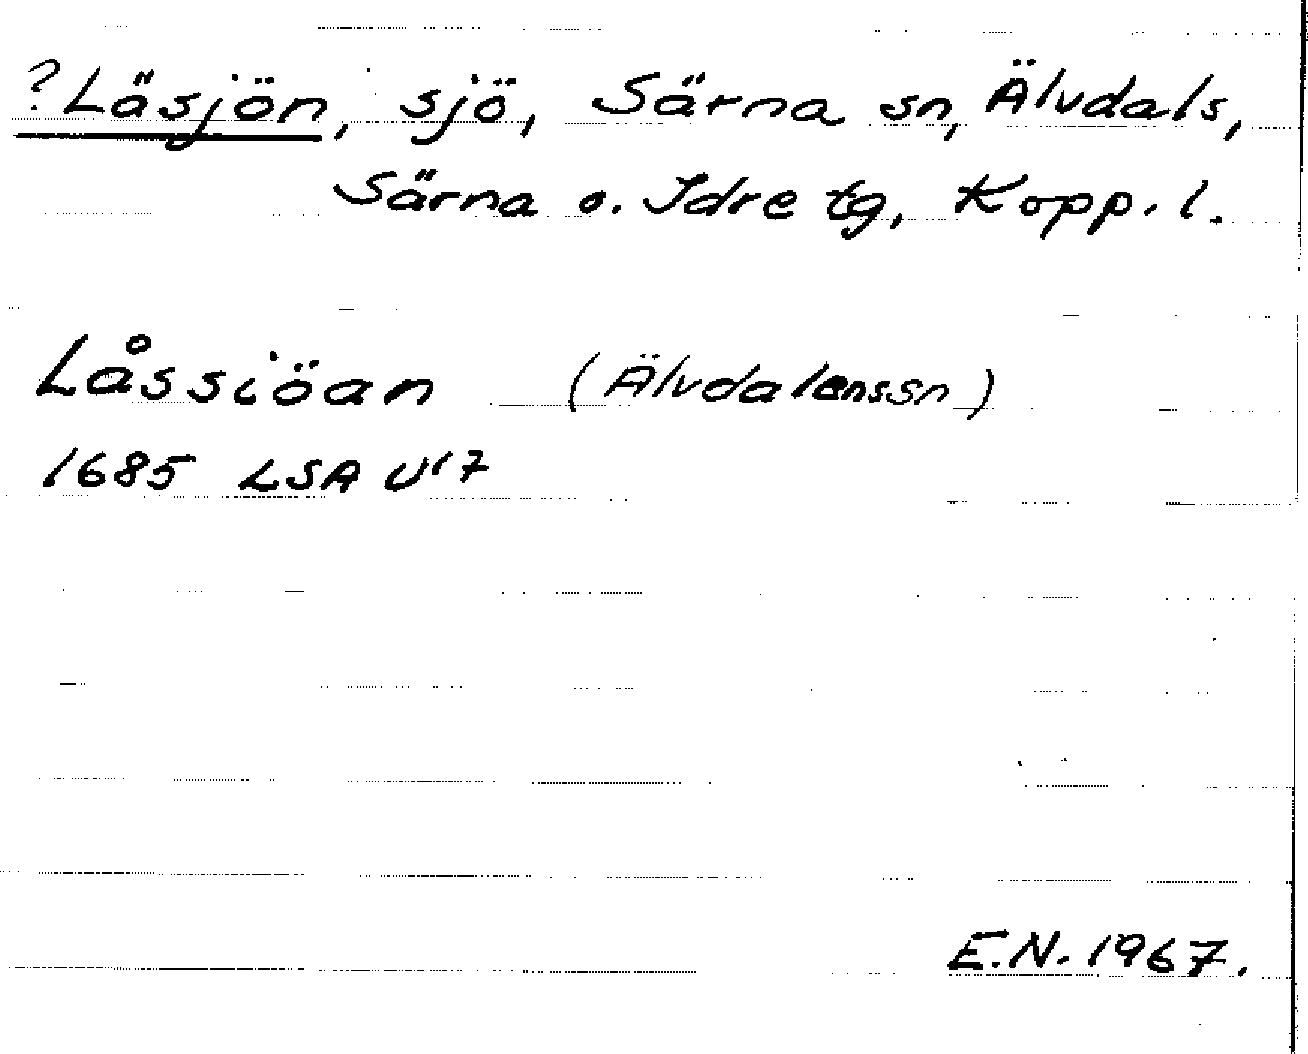 ?Läsjön, sjö, Särna sn, Älvdals,
Särna o. Idre tg, Kopp. l.
Låssiöan (Älvdalenssn)
1685 LSA U17
E.N. 1967.